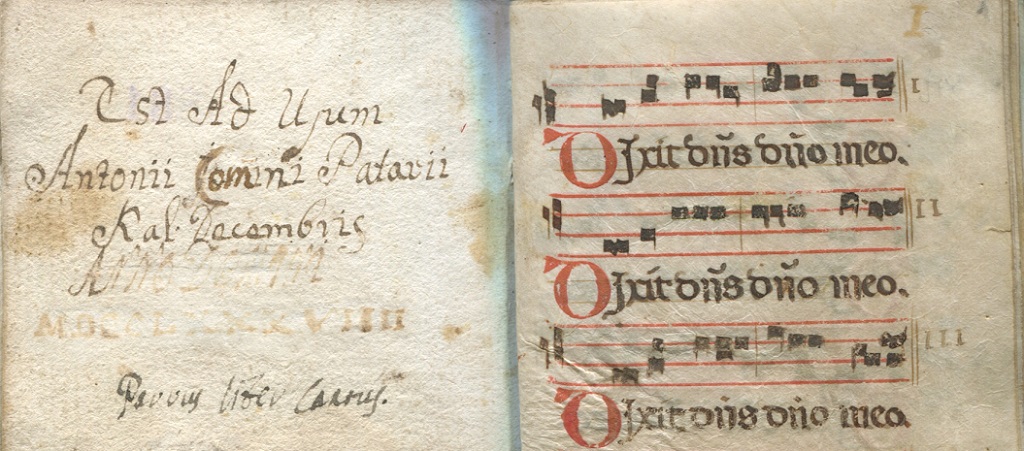 Est Ad Usum
Antonii Comini Patavii
Kal. Decembris
Anno
Parvus liber Cantus.
I
I
DIxit dñs dño meo.
II
DIxit dñs dño meo.
III
DIxit dñs dño meo.